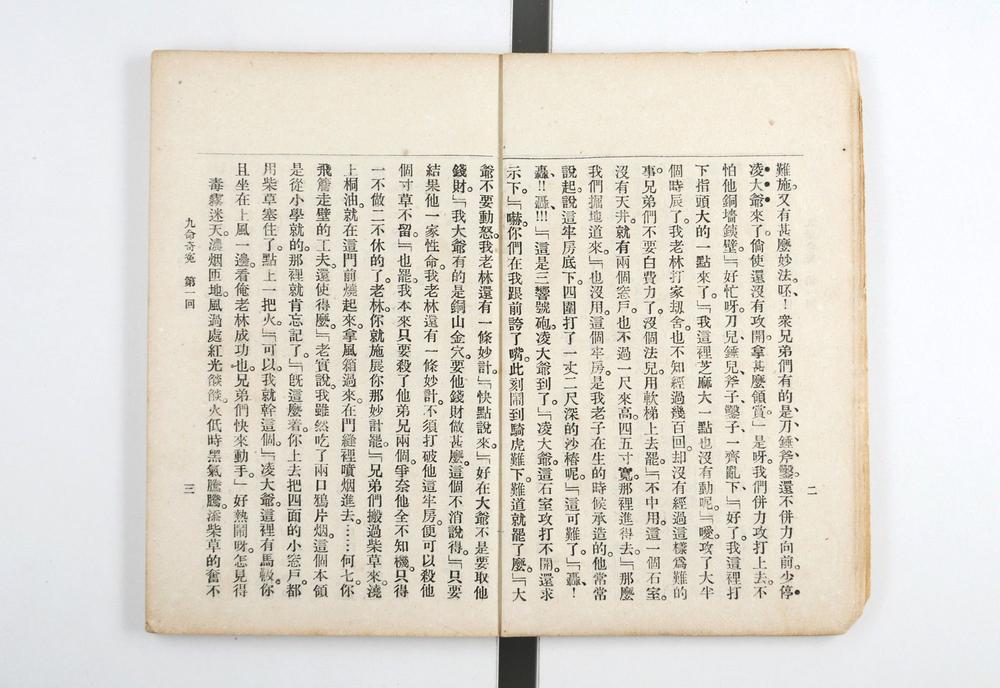 難施。又有甚麼妙法呀！衆兄弟們有的是刀、錘、斧、鑿、還不併力向前。少停
凌大爺來了。倘使還沒有攻開。拿甚麼領賞」是呀。我們併力攻打上去。不
怕他銅墻鐵壁。』『好忙呀。刀兒、錘兒、斧子、鑿子、一齊亂下。』『好了。我這裡打
下指頭大的一點來了。』『我這裡芝麻大一點也沒有動呢。』『噯。攻了大半
個時辰了。我老林打家刼舍。也不知經過幾百回。却沒有經過這樣爲難的
事。兄弟們不要白費力了。沒個法兒。用軟梯上去罷。』『不中用。這一個石室。
沒有天井。就有兩個窓戶。也不過一尺來高。四五寸寬。那裡進得去。』『那麼
我們掘地道來。』『也沒用。這個牢房。是我老子在生的時候承造的。他常常
說起。說這牢房底下。四圍打了一丈二尺深的沙樁呢。』『這可難了。』『轟、！
轟、!!轟、!!!』『這是三響號砲。凌大爺到了。』『凌大爺。這石室攻打不開。還求
示下。』『嚇。你們在我跟前誇了嘴。此刻鬧到騎虎難下。難道就罷了麼。』『大
爺不要動怒。我老林還有一條妙計。』『快點說來。』『好在大爺不是要取他
錢財。』『我大爺有的是銅山金穴。要他錢財做甚麼。這個不消說得。』『只要
結果他一家性命。我老林還有一條妙計。不須打破他這牢房。便可以殺他
個寸草不留。』『也罷。我本來只要殺了他弟兄兩個。爭奈他全不知機。只得
一不做二不休的了。老林。你就施展你那妙計罷。』『兄弟們搬過柴草來。澆
上桐油。就在這門前燒起來。拿風箱過來。在門縫裡噴烟進去。……何七。你
飛簷走壁的工夫。還使得麼。』『老實說。我雖然吃了兩口鴉片烟。這個本領
是從小學就的。那裡就肯忘記了。』『旣這麼着。你上去把四面的小窓戶。都
用柴草塞住了。點上一把火。』『可以。我就幹這個。』『凌大爺。這裡有馬鞍。你
且坐在上風一邊。看俺老林成功也。兄弟們快來動手。』好熱鬧呀。怎見得
毒霧迷天。濃烟匝地。風過處紅光燄燄。火低時黑氣騰騰。添柴草的奮不
九命奇冤　第一回
二
三